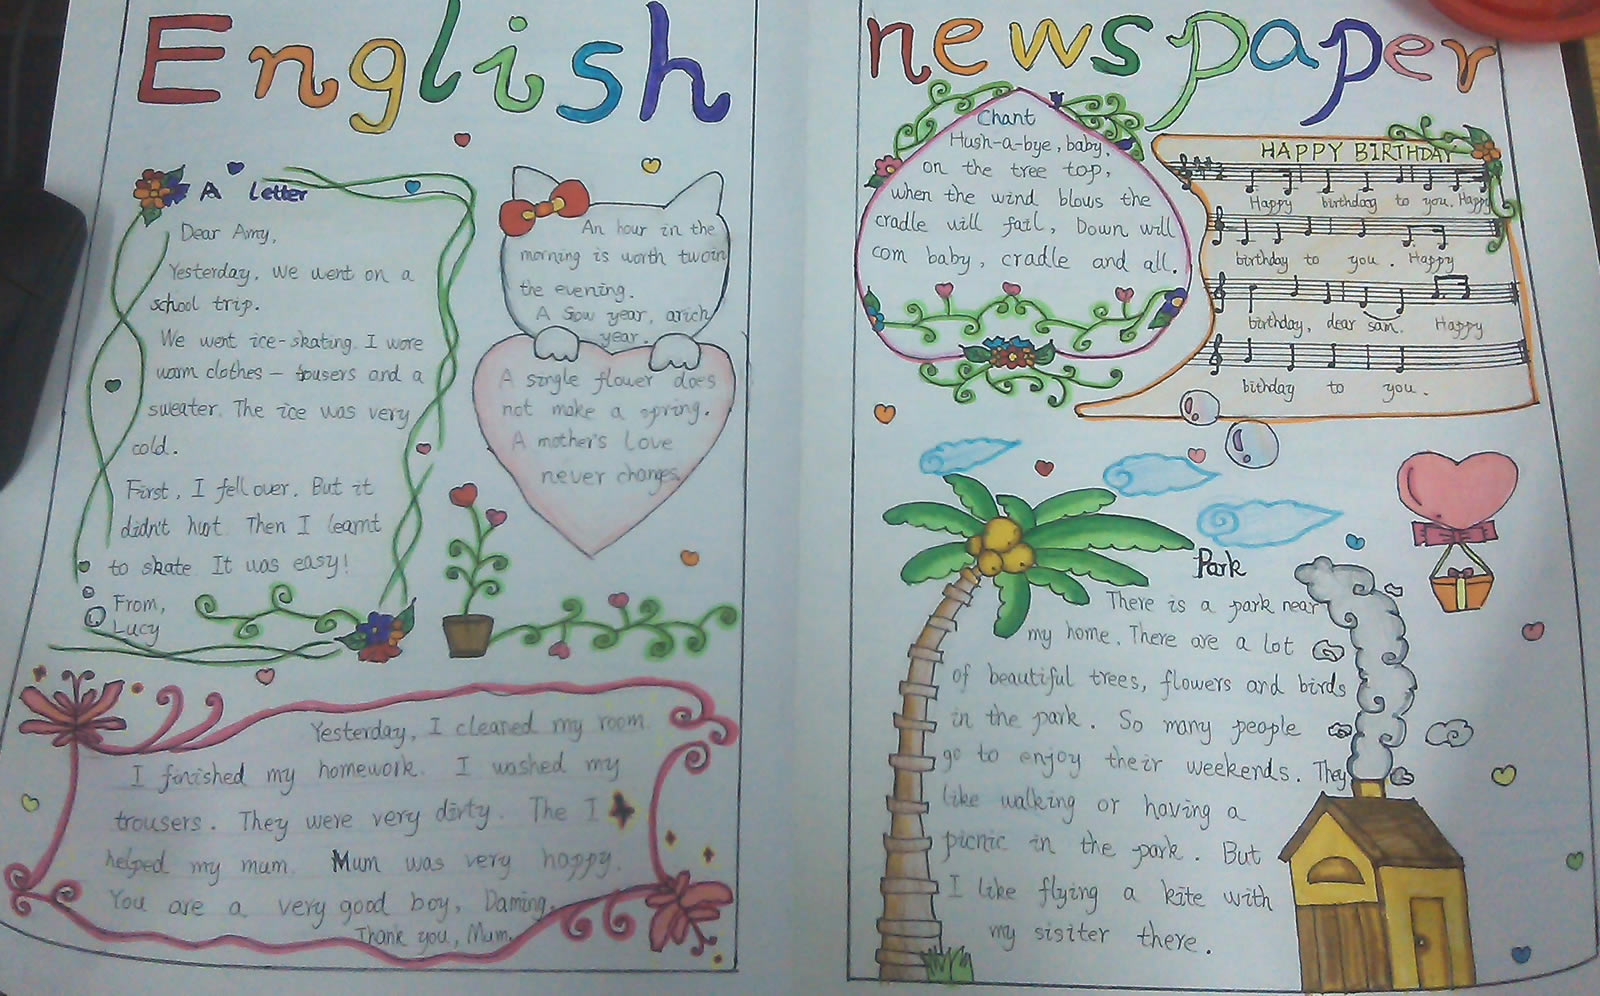 English newspaper
A Letter
Dear Amy,
Yesterday, we went on a
school trip.
We went ice-skating. I wore
warm clothes – tousers and a
sweater. The ice was very
cold.
First, I fell over. But it
didn't hurt. Then I learnt
to skate. It was easy!
From,
Lucy
An hour in the
morning is worth twoin
the evening.
A Snow year, arich
year.
A single flower does
not make a spring.
A mother's Love
never changes.
Yesterday, I cleaned my room.
I finished my homework. I washed my
trousers. They were very dirty. The I
helped my mum. Mum was very happy.
You are a very good boy, Daming.
Thank you, Mum.
Chant
Hush-a-bye, baby,
on the tree top,
when the wind blows the
cradle will fail, Down will
com baby, cradle and all.
HAPPY BIRTHDAY
Happy birthday to you. Happy
birthday to you. Happy
birthday, dear sam. Happy
bithday to you.
Park
There is a park near
my home. There are a lot
of beautiful trees, flowers and birds
in the park. So many people
go to enjoy their weekends. They
like walking or having a
picnic in the park. But
I like flying a kite with
my sisiter there.